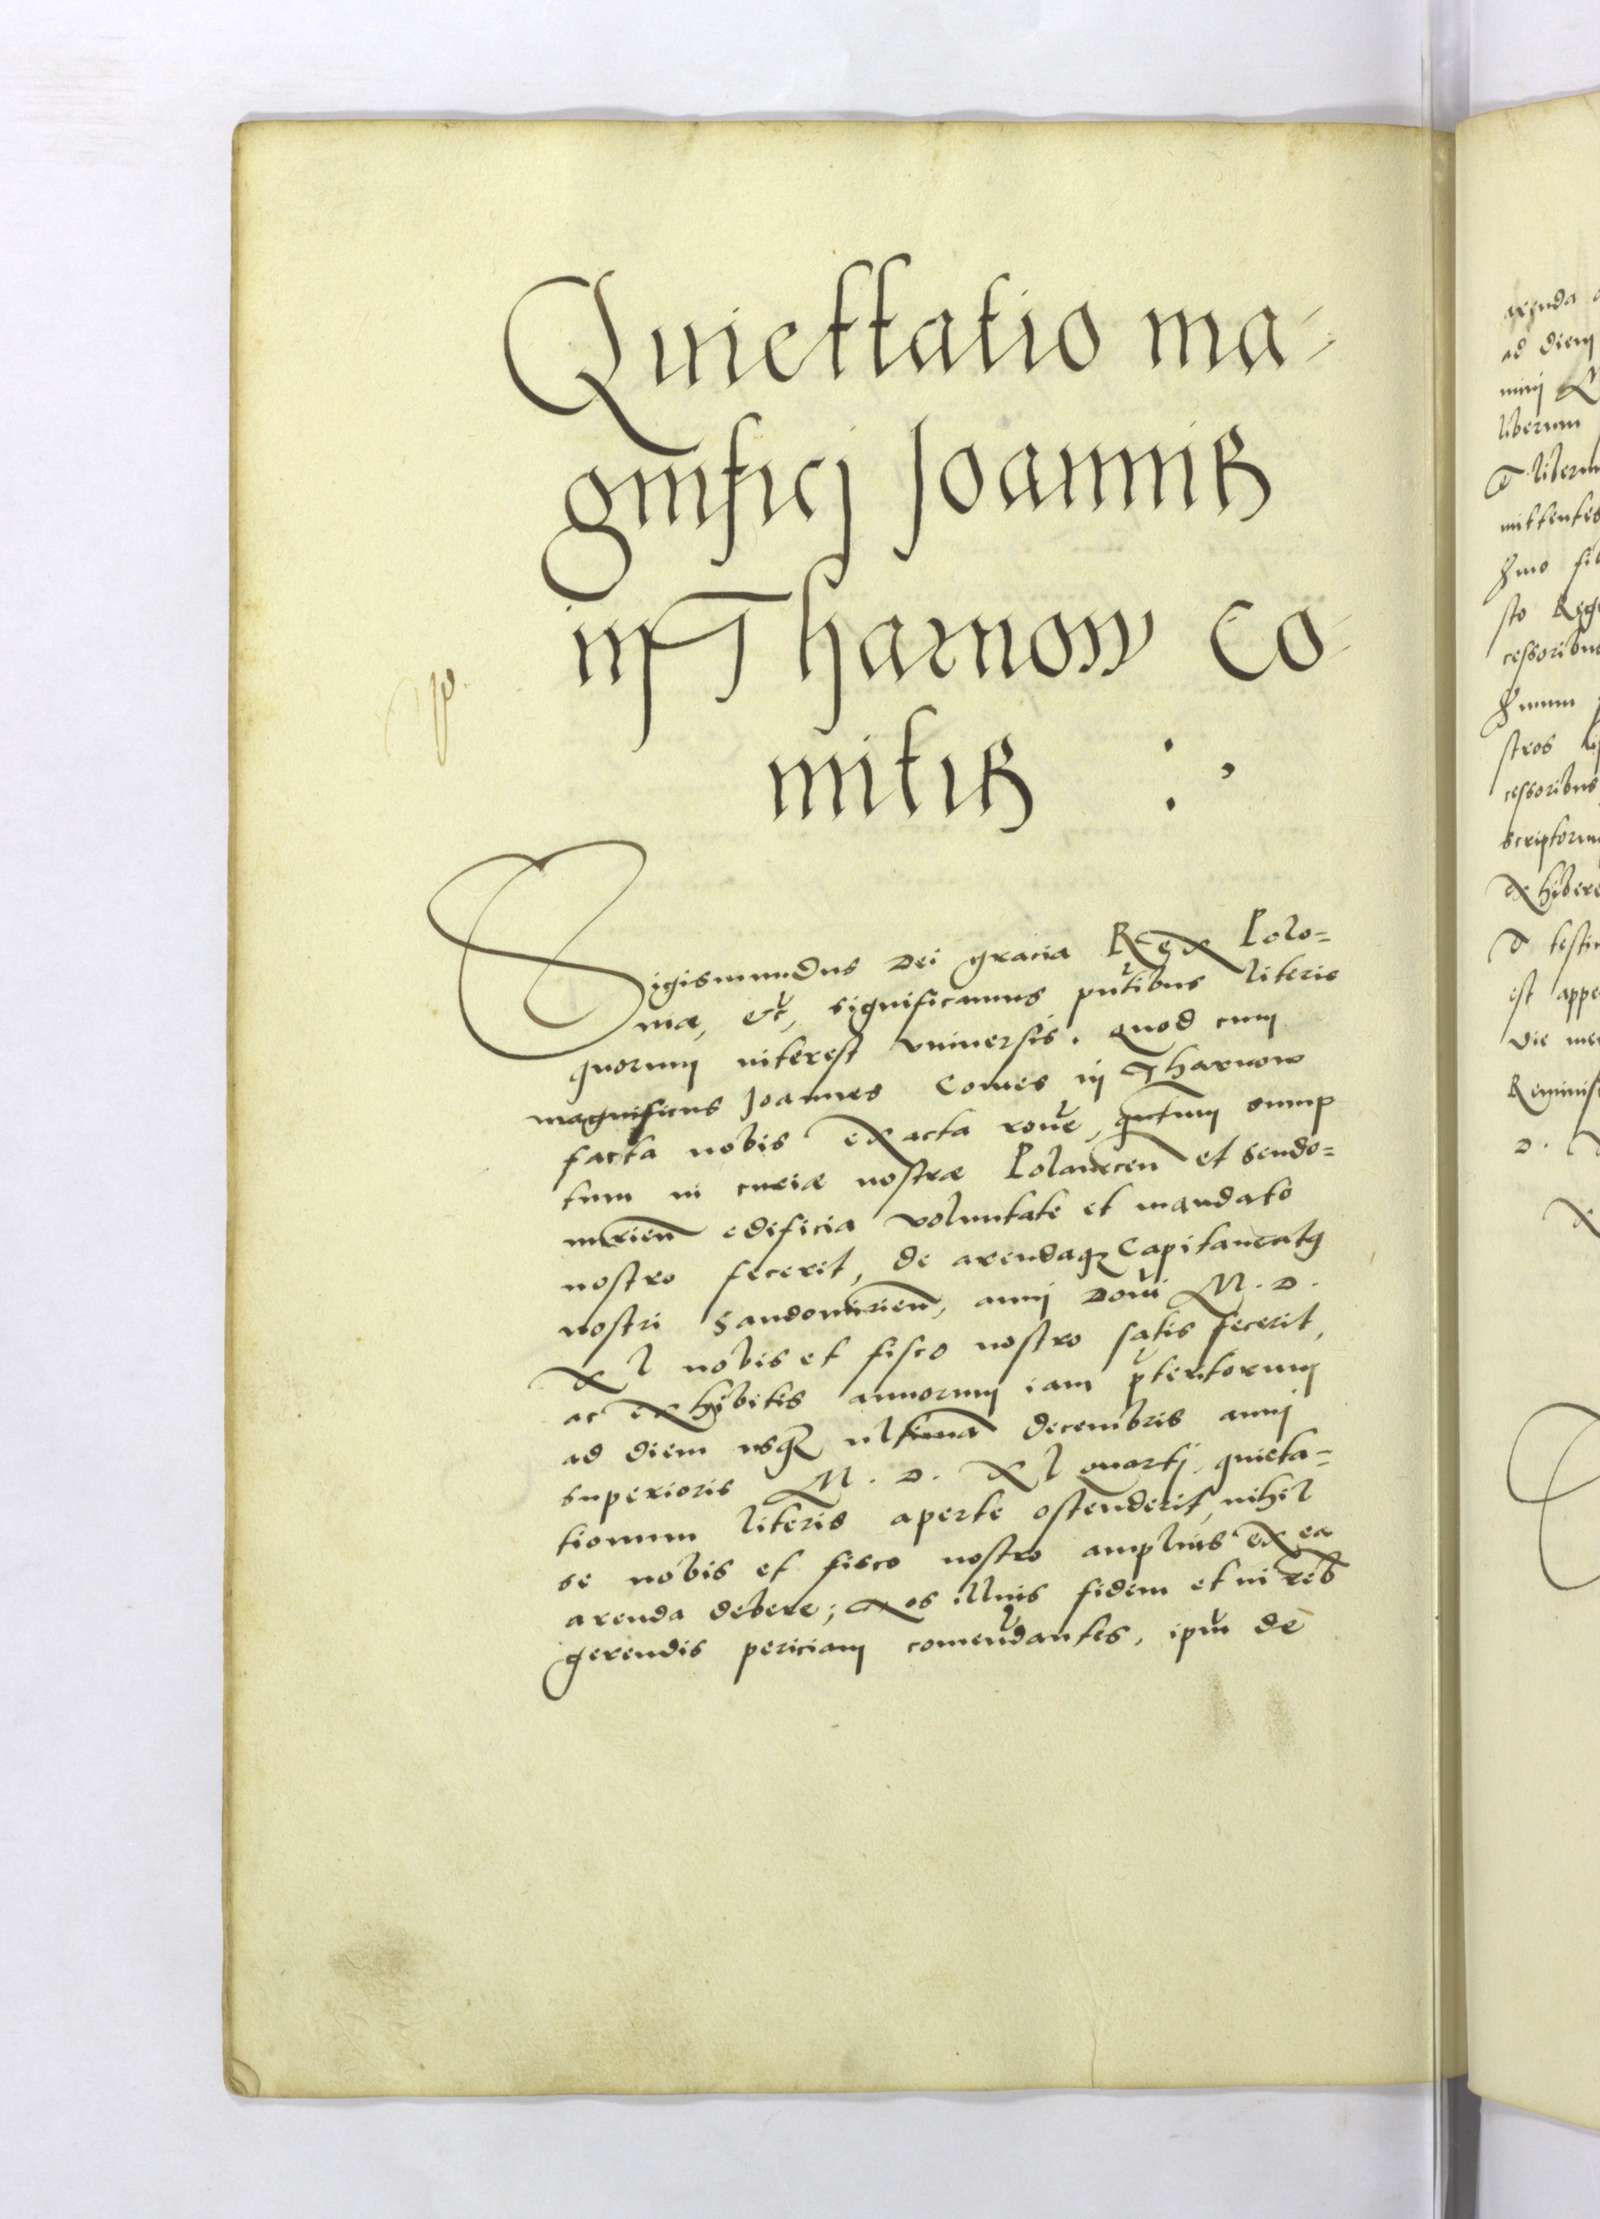 Quiettatio ma-
gnificj Joannis
in Tharnow Co-
mitis
Sigismundus Dei gracia Rex Polo=
niæ, etc, significamus pntibus literis
quorum interest vniuersis. quod cum
magnificus Joannes Comes in Tharnow
facta nobis exacta rone, quantum sump
tum in curiæ nostræ Polanecen et Sendo=
mirien edificia voluntate et mandato
nostro fecerit, de arendaq Capitaneatus
nostri Sandomirien, anni Domini M. D.
Xl nobis et fisco nostro satis fecerit,
ac exhibitis annorum iam pteritorum
ad diem usq ultima decembris anni
superioris M. D. Xl quarti quieta=
tionum literis aperte ostenderit, nihil
se nobis et fisco nostro amplius ex ea
arenda debere; Nos illius fidem et in reb
gerendis periciam comendantes, ipm de
arenda
ad diem
liberum
mittentes
sto Reg
cessoribus
stros
cessoribus
est appe
die mer
Reminisc